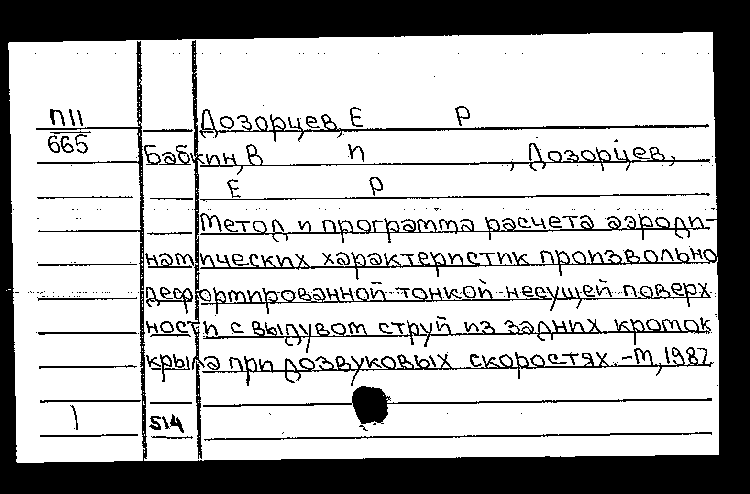 П11 Дозорцев, Е Р
665 Бабкин, В П , Дозорцев,
Е Р
Метод и программа расчета аэроди-
намических характеристик произвольно
деформированной тонкой несущей поверх
ности с выдувом струй из задних кромок
крыла при дозвуковых скоростях. -М, 1987
1 514